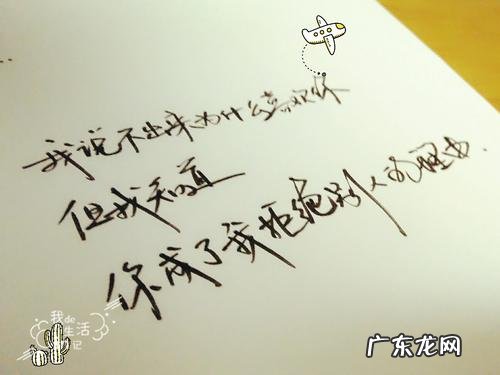 我说不出来为什么喜欢你
但我知道
你成了我拒绝别人的理由.
我de
生活
日记
广东龙网